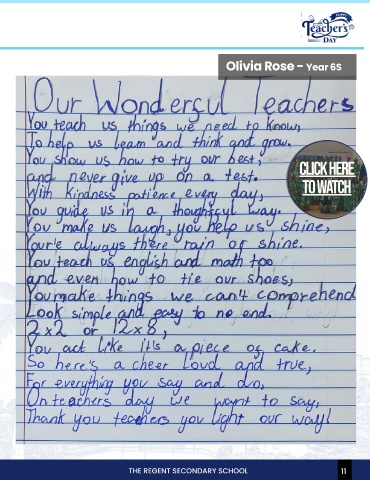 Teacher's
DAY
Olivia Rose - Year 6S
Our Wonderful Teachers
You teach us things we need to know,
To help us learn and think and grow.
You show us how to try our best,
and never give up on a test.
With kindness patience every day,
You guide us in a thoughtful way.
You make us laugh, you help us shine,
Your'e always there rain or shine.
You teach us english and math too
and even how to tie our shoes,
You make things we can't comprehend
Look simple and easy to no end.
2x2 or 12x8,
You act like it's a piece of cake.
So here's a cheer loud and true,
For everything you say and do,
On teachers day we want to say,
Thank you teachers you light our way!
CLICK HERE
TO WATCH
THE REGENT SECONDARY SCHOOL
11